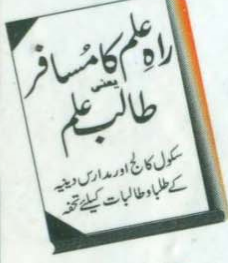 راہِ علم کا مُسافر
یعنی
طالب علم
سکول کالج اور مدارس دینیہ
کے طلباء و طالبات کیلئے تحفہ